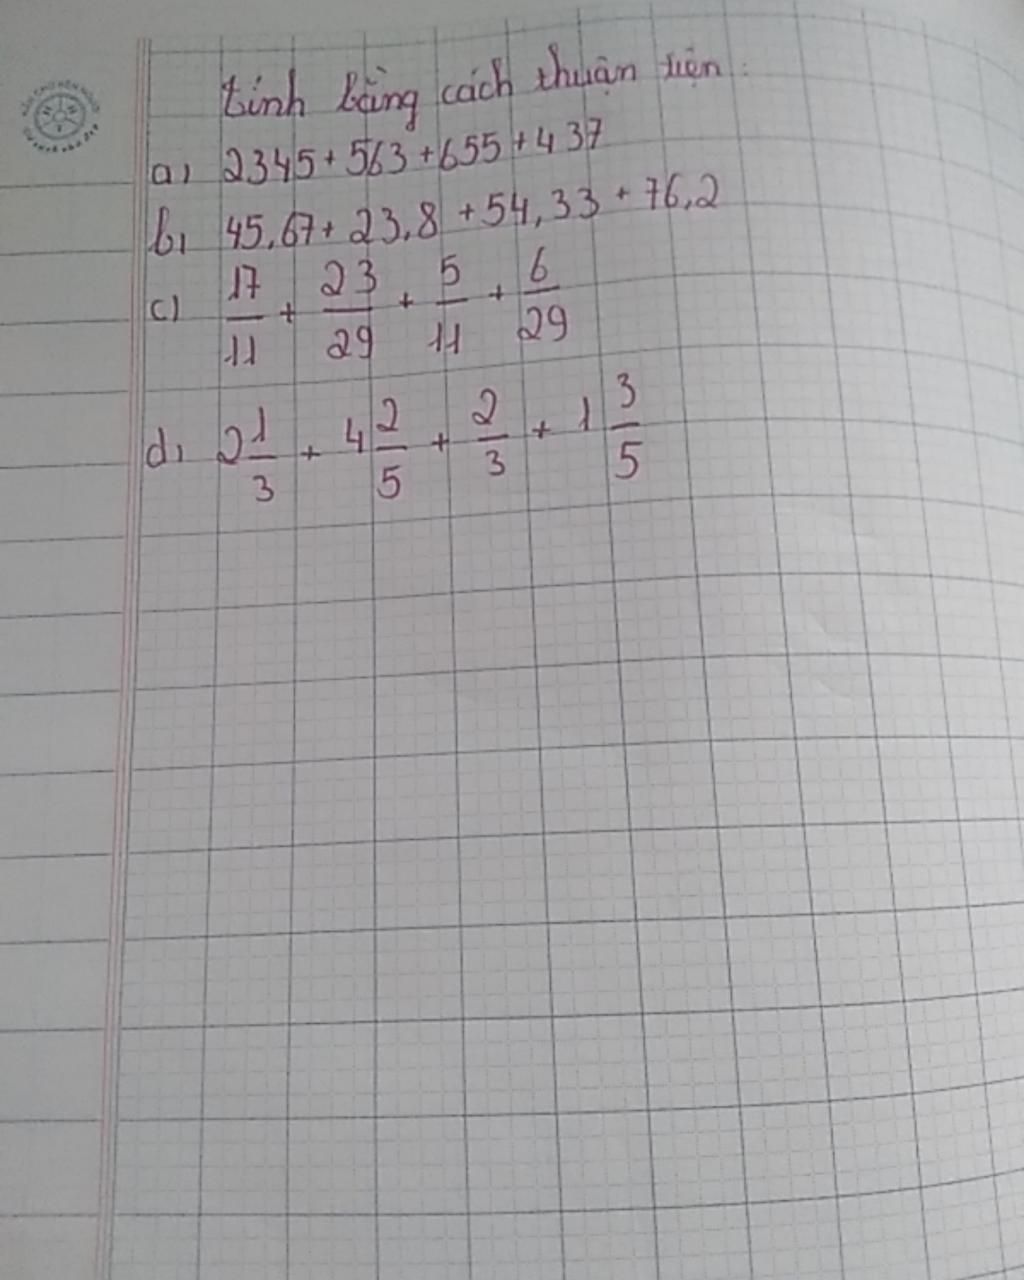 tính bằng cách thuận tiện:
a, 2345 + 563 + 655 + 437
b, 45,67 + 23,8 + 54,33 + 76,2
c) 17/11 + 23/29 + 5/11 + 6/29
d, 2 1/3 + 4 2/5 + 2/3 + 1 3/5